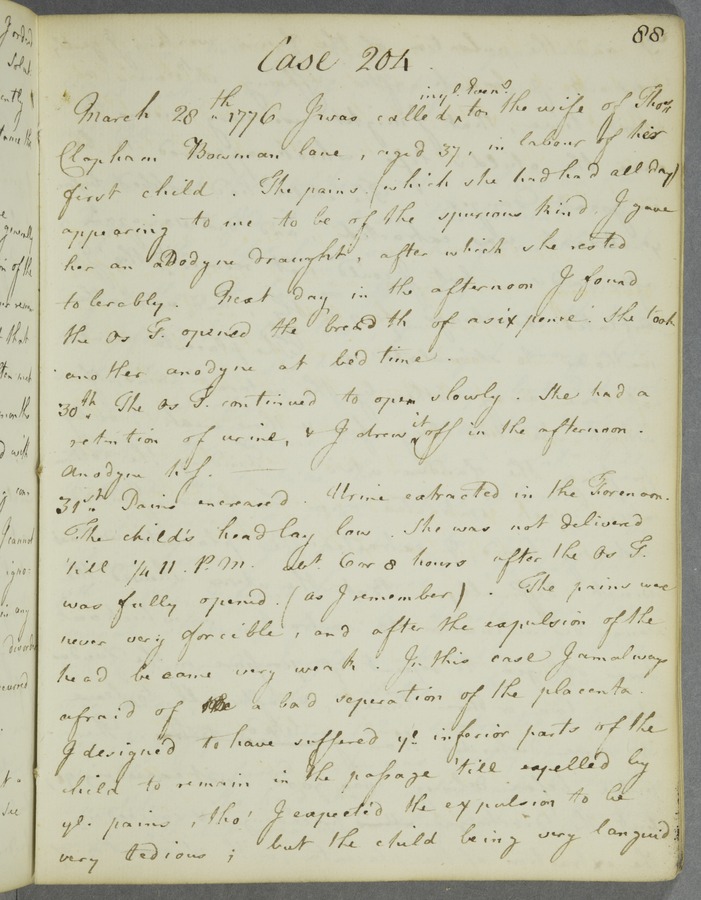 88
Case 204
March 28th 1776 I was called in ye. Even.g to the wife of Thos.
Clapham Bowman lane, aged 37, in labour of his
first child. The pains (which she had had all day)
appearing to me to be of the spurious kind, I gave
her an aDodyne draught, after which she rested
tolerably. Next day in the afternoon I found
the Os T. opened the breadth of a six pence. She took
another anodyne at bed time.
30th The Os T. continued to open slowly. She had a
retention of urine, & I drew it off in the afternoon.
Anodyne h. s.
31st Pains increased. Urine extracted in the Forenoon.
The child's head lay low. She was not delivered
'till 1/4 11. P.M. abt. 6 or 8 hours after the Os T.
was fully opened. (as I remember). The pains were
never very forcible, and after the expulsion of the
head became very weak. In this case I am always
afraid of a bad seperation of the placenta.
I designed to have suffered ye. inferior parts of the
child to remain in the passage 'till expelled by
ye. pains, tho' I expected the expulsion to be
very tedious; but the child being very languid